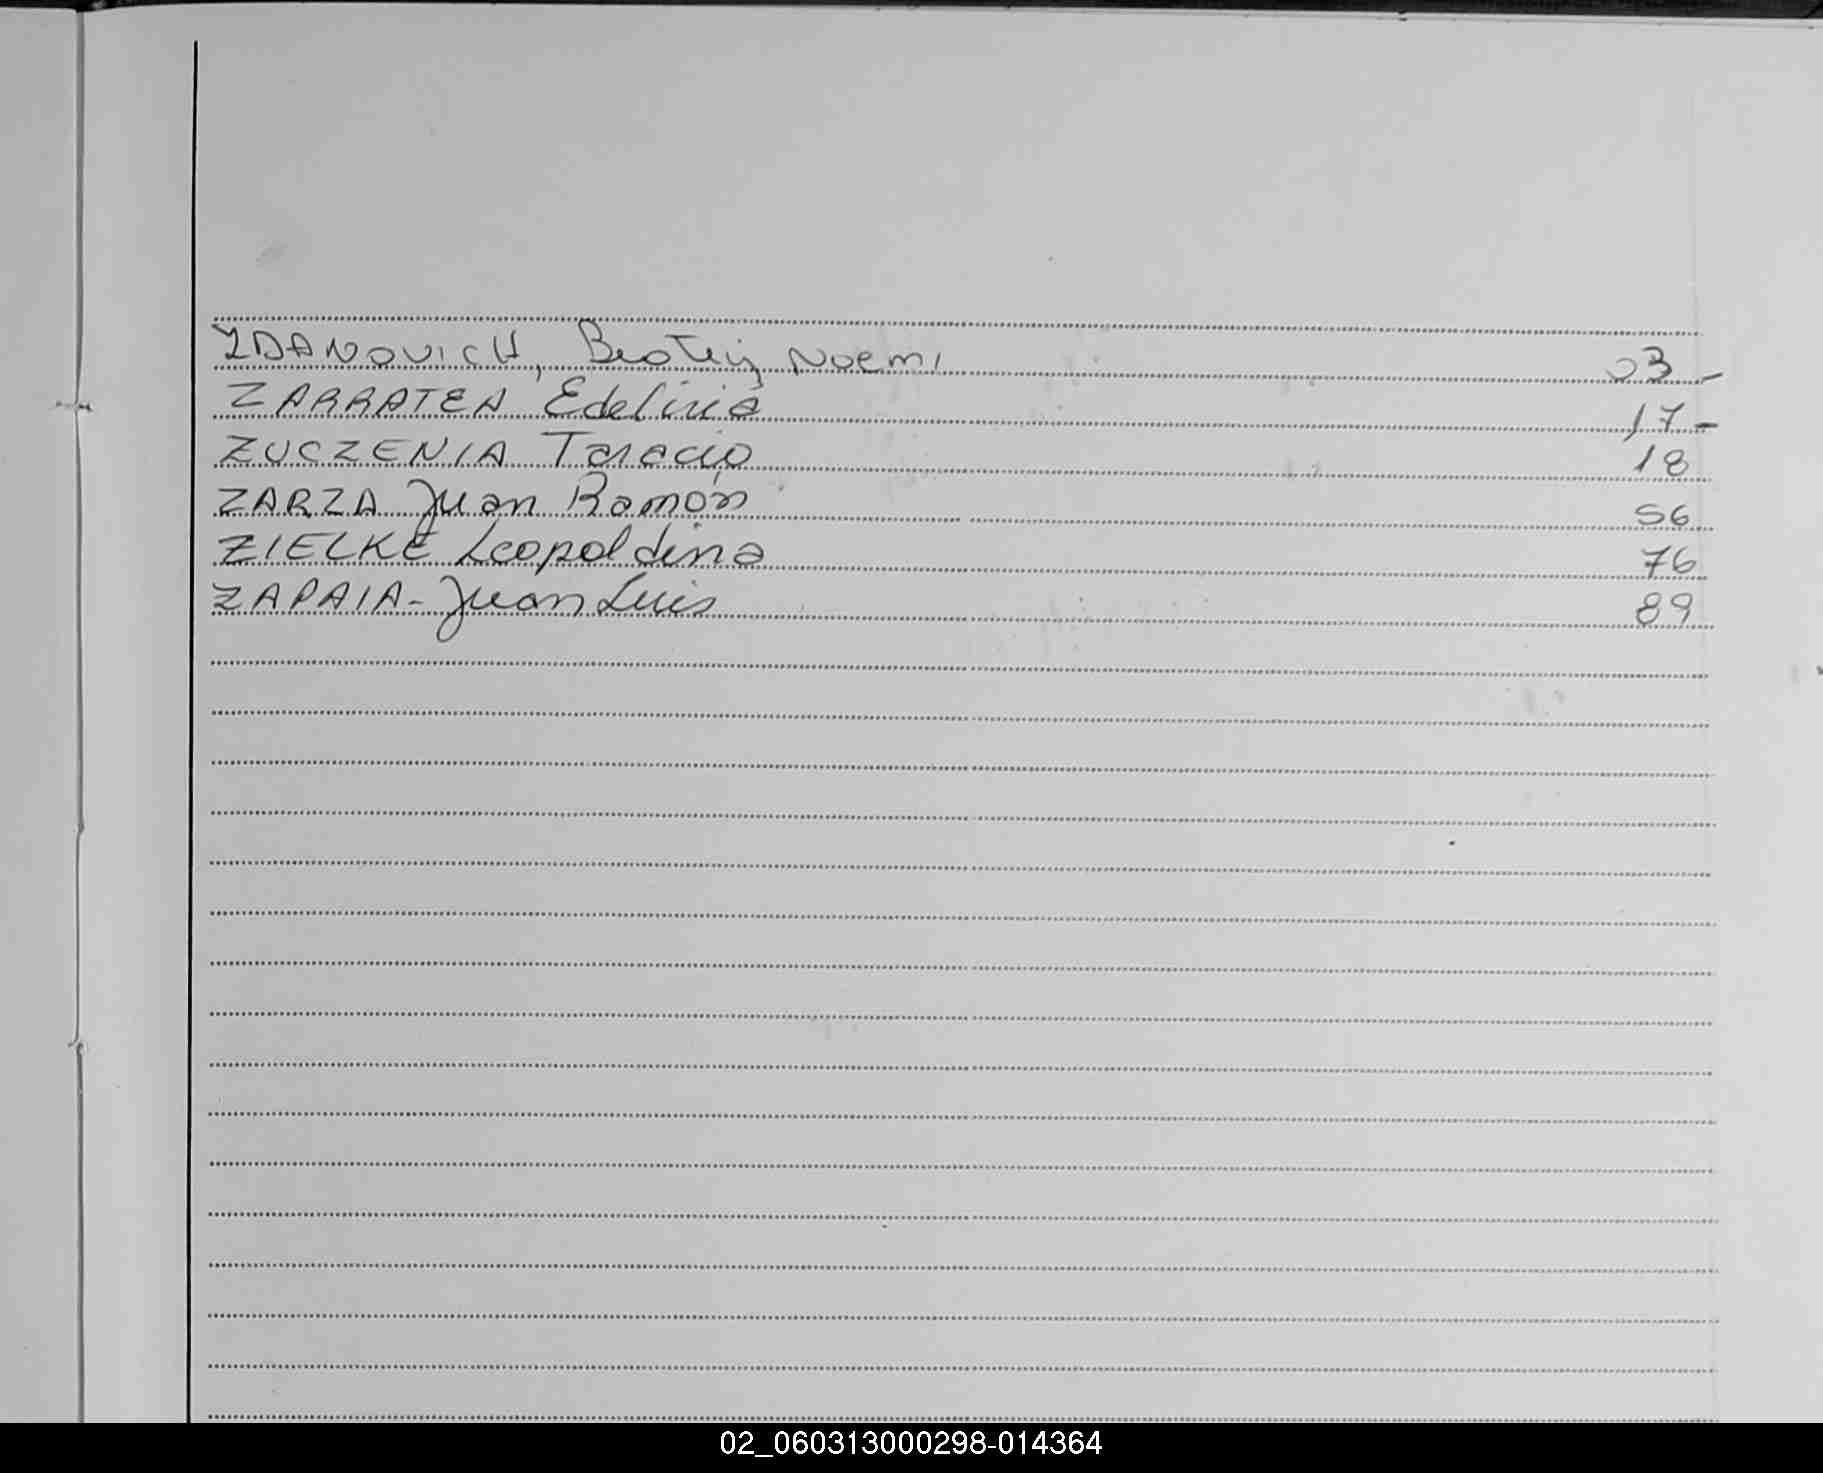 ZDANOVICH, Beatriz Noemi 03-
ZARRATEA Edelinia 17-
ZUCZENIA Taracio 18
ZARZA Juan Ramón 56
ZIELKE Leopoldina 76
ZAPAIA-Juan Luis 89
02_060313000298-014364